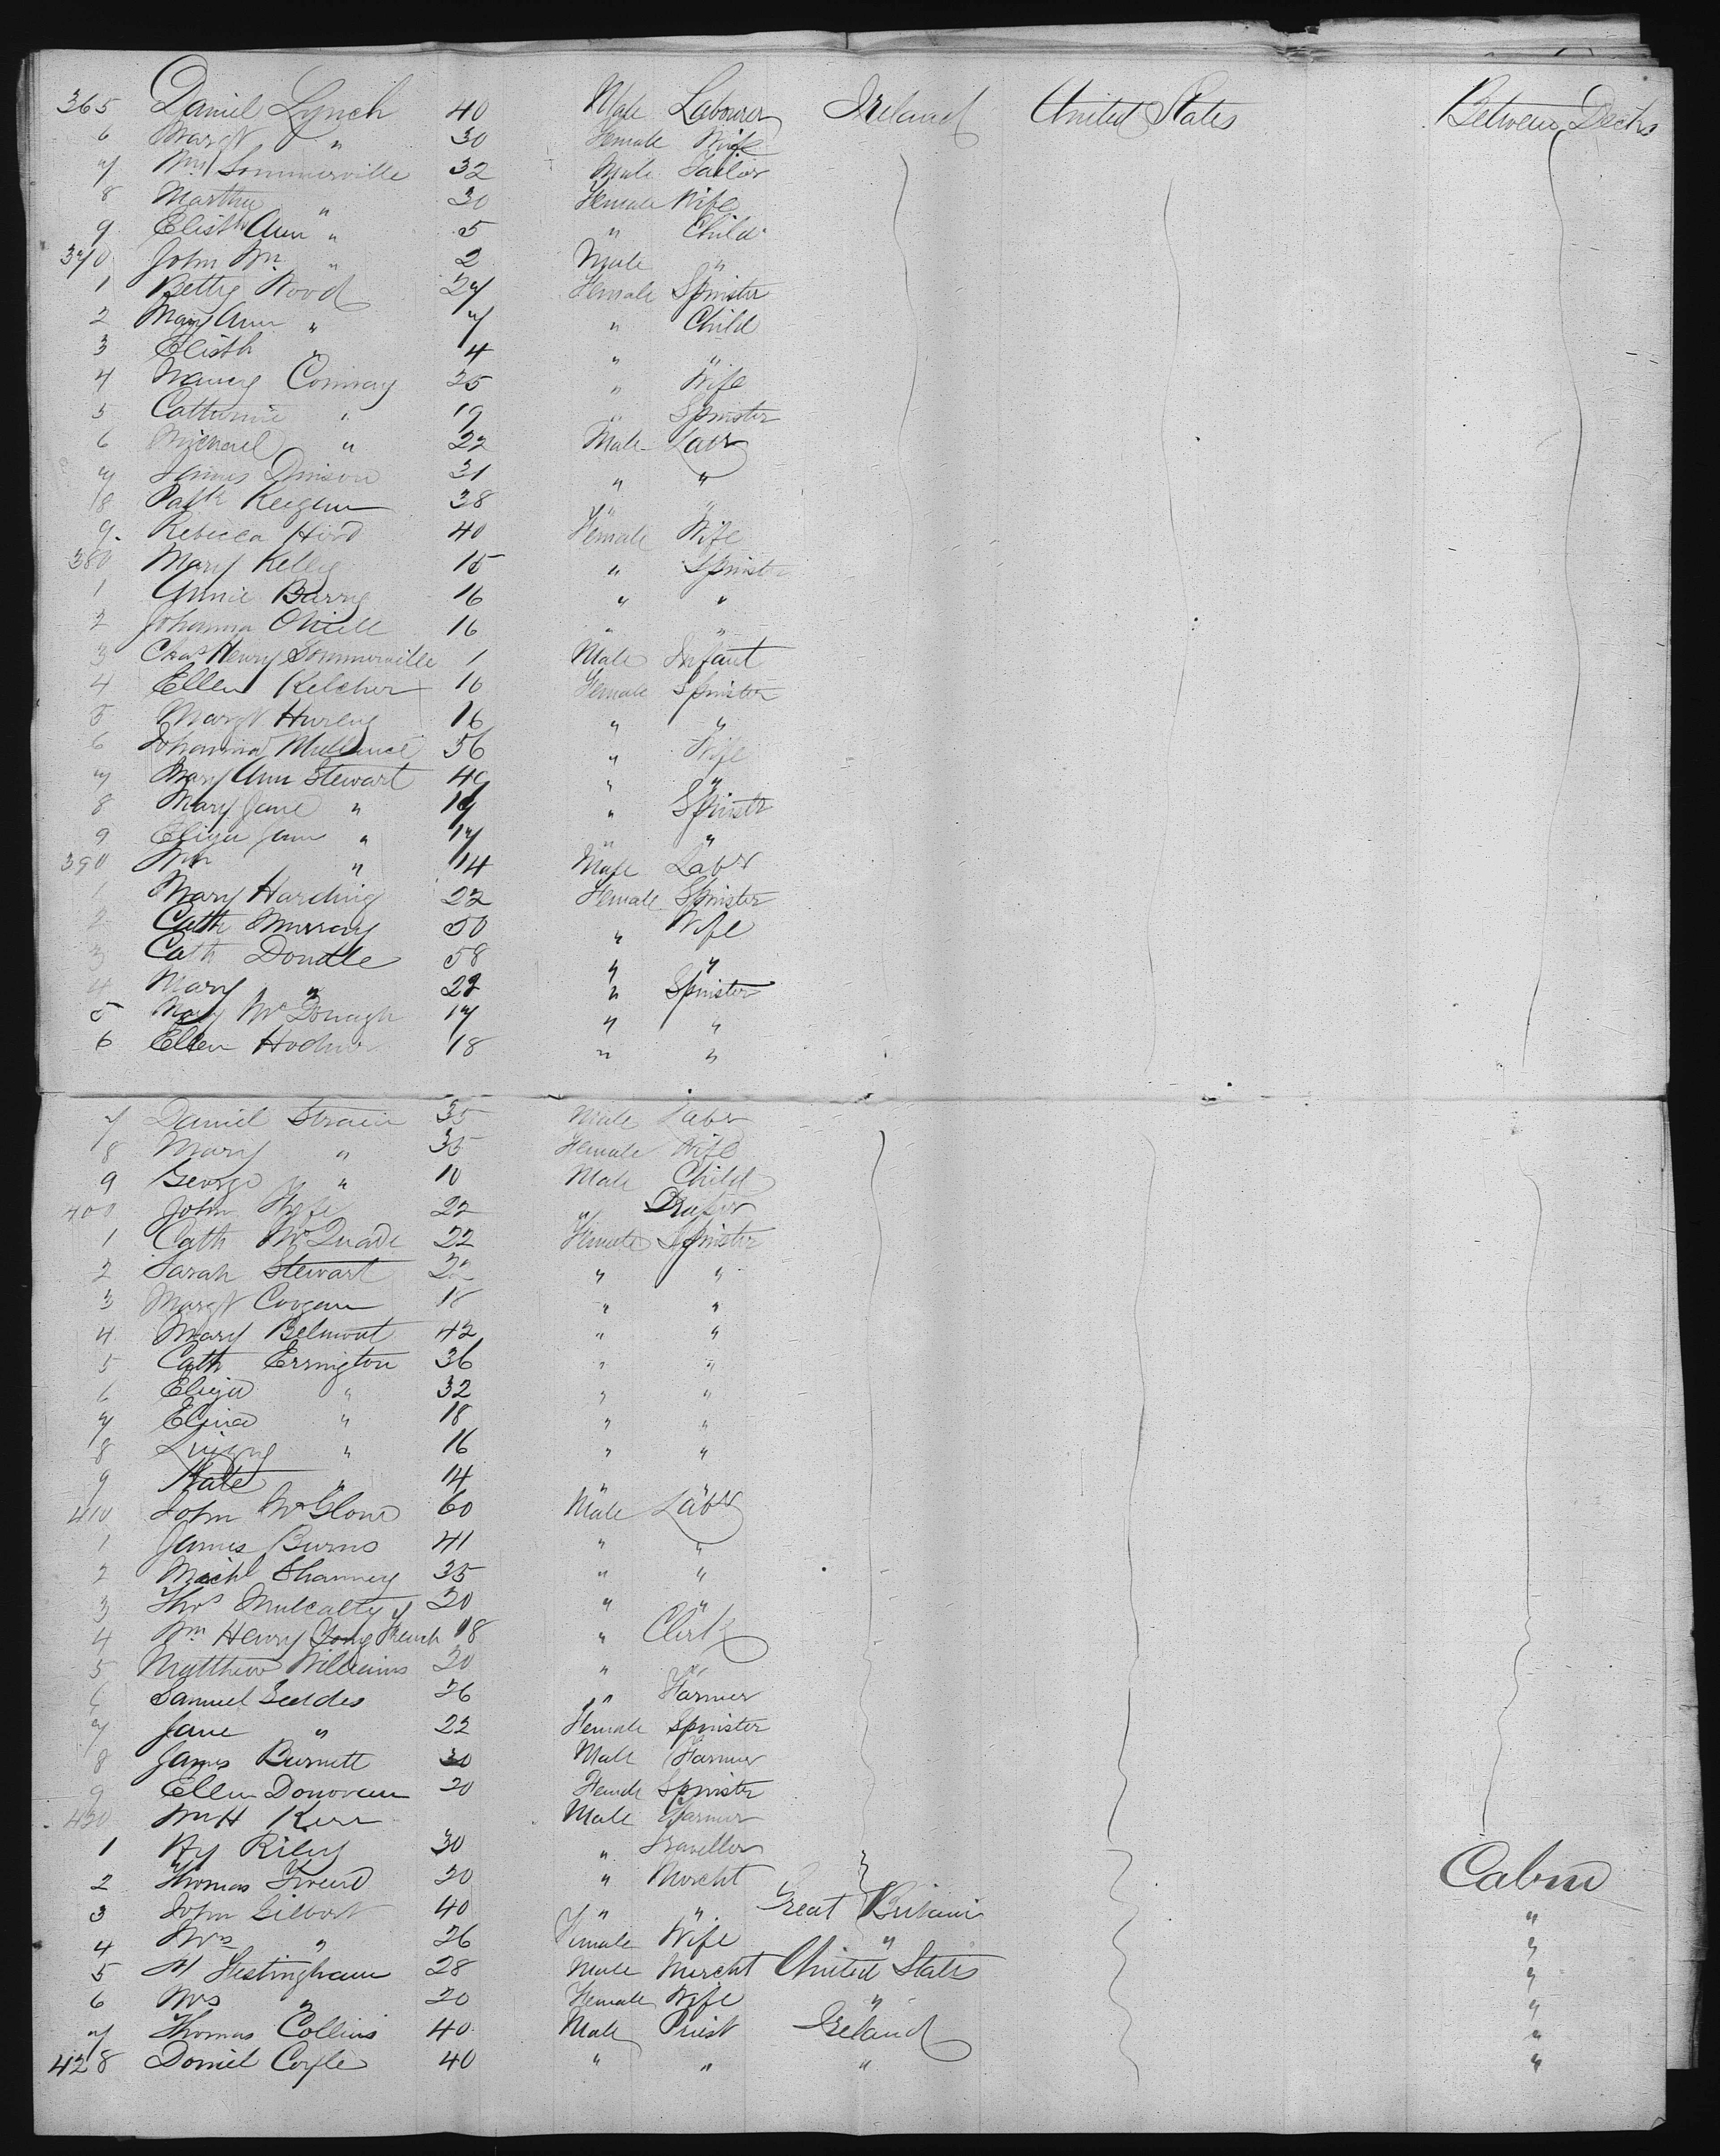 365 Daniel Lynch 40 Male Labourer Ireland United States Between Decks
6 Margt " 30 Female Wife
7 Wm Sommerville 32 Male Tailor
8 Martha " 30 Female Wife
9 Elisth Ann " 5 " Child
370 John Wm " 2 Male "
1 Betty Wood 27 Female Spinster
2 Mary Ann " 7 " Child
3 Elisth " 4 " "
4 Nancy Conway 25 " Wife
5 Catherine " 19 " Spinster
6 Michael " 22 Male Labr
7 James 31 " "
8 Patk Keegan 38 " "
9 Rebecca Hird 40 Female Wife
380 Mary Kelly 15 " Spinster
1 Annie Barry 16 " "
2 Johanna ONeill 16 " "
3 Chas Henry Sommerville 1 Male Infant
4 Ellen Kelcher 16 Female Spinster
5 Margt 16 " "
6 Johanna 56 " Wife
7 Mary Ann Stewart 49 " "
8 Mary Jane " 19 " Spinstr
9 Eliza Jane " 17 " "
390 Wm " 14 Male Labr
1 Mary Harding 22 Female Spinster
2 Cath Murray 50 " Wife
3 Cath Dondle 58 " "
4 Mary " 22 " Spinster
5 Mary McDonagh 17 " "
6 Ellen 18 " "
7 Daniel Strain 35 Male Labr
8 Mary " 35 Female Wife
9 George " 10 Male Child
400 John 22 " Draper
1 Cath McQuade 22 Female Spinster
2 Sarah Stewart 22 " "
3 Margt Coogan 18 " "
4 Mary Belmont 42 " "
5 Cath Errington 36 " "
6 Eliza " 32 " "
7 " 18 " "
8 " 16 " "
9 Kate " 14 " "
410 John McGlone 60 Male Labr
1 James Burns 41 " "
2 Michl Shannery 35 " "
3 Thos Mulcalty 20 " "
4 Wm Henry French 18 " Clerk
5 Matthew Williams 20 " "
6 Samuel Geddes 26 " Farmer
7 Jane " 22 Female Spinster
8 James Burnett 30 Male Farmer
9 Ellen Donovan 20 Female Spinster
420 Wm H Kerr Male Farmer
1 Hy Riley 30 " Traveller
2 Thomas 20 " Mercht Cabin
3 John Gilbort 40 " " Great Britain "
4 Mrs " 26 Female Wife " "
5 28 Male Mercht United States "
6 Mrs " 20 Female Wife " "
7 Thomas Collins 40 Male Priest Ireland "
428 Daniel Coyle 40 " " " "